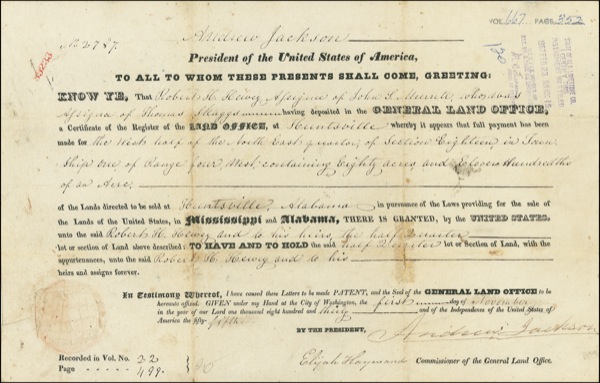 VOL 667 PAGE 352
No. 2787.
Andrew Jackson
President of the United States of America,
TO ALL TO WHOM THESE PRESENTS SHALL COME, GREETING:
KNOW YE, That Robert H. Hewey Assignee of John S. Murrell, who was
Assignee of Thomas Skaggs having deposited in the GENERAL LAND OFFICE,
a Certificate of the Register of the LAND OFFICE, at Huntsville whereby it appears that full payment has been
made for the West half of the North East quarter, of Section Eighteen in Town
Ship one of Range four West, containing Eighty acres and Eleven Hundredths
of an Acre,
of the Lands directed to be sold at Huntsville, Alabama in pursuance of the Laws providing for the sale of
the Lands of the United States, in Mississippi and Alabama, THERE IS GRANTED, by the UNITED STATES,
unto the said Robert H. Hewey and to his heirs, the half Quarter
lot or section of Land above described: TO HAVE AND TO HOLD the said half Quarter lot or Section of Land, with the
appurtenances, unto the said Robert H. Hewey and to his
heirs and assigns forever.
In Testimony Whereof, I have caused these Letters to be made PATENT, and the Seal of the GENERAL LAND OFFICE to be
hereunto affixed. GIVEN under my Hand at the City of Washington, the first day of November
in the year of our Lord one thousand eight hundred and thirty and of the Independence of the United States of
America the fifty-fifth
BY THE PRESIDENT,
Andrew Jackson
Recorded in Vol. No. 22
Page 499
Elijah Hayward Commissioner of the General Land Office.